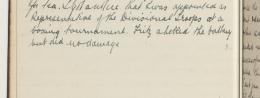 for tea.
that I was appointed as
Representative of the Divisional Troops at a
boxing tournament. Fritz shelled the battery
but did no damage